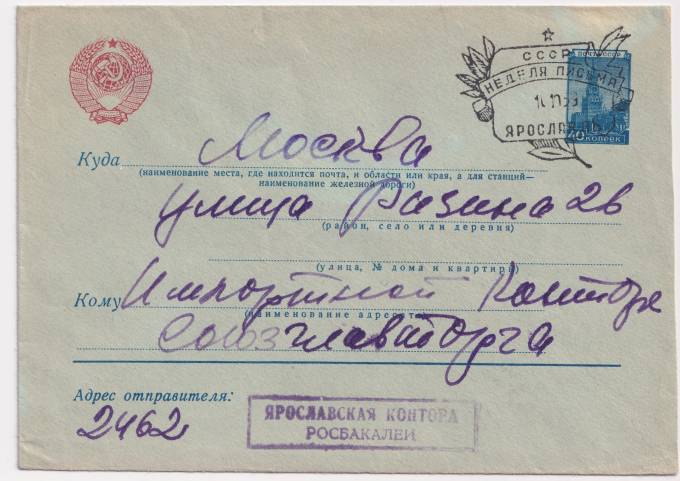 СССР
НЕДЕЛЯ ПИСЬМА
ЯРОСЛАВЛЬ
40 КОПЕЕК
Куда Москва
(наименование места, где находится почта, и области или края, а для станций—
наименование железной дороги)
улица Разина 26
(район, село или деревня)
(улица, № дома и квартиры)
Кому Импортной Конторе
(наименование адресата)
Союзглавторга
Адрес отправителя:
2462
ЯРОСЛАВСКАЯ КОНТОРА
РОСБАКАЛЕИ